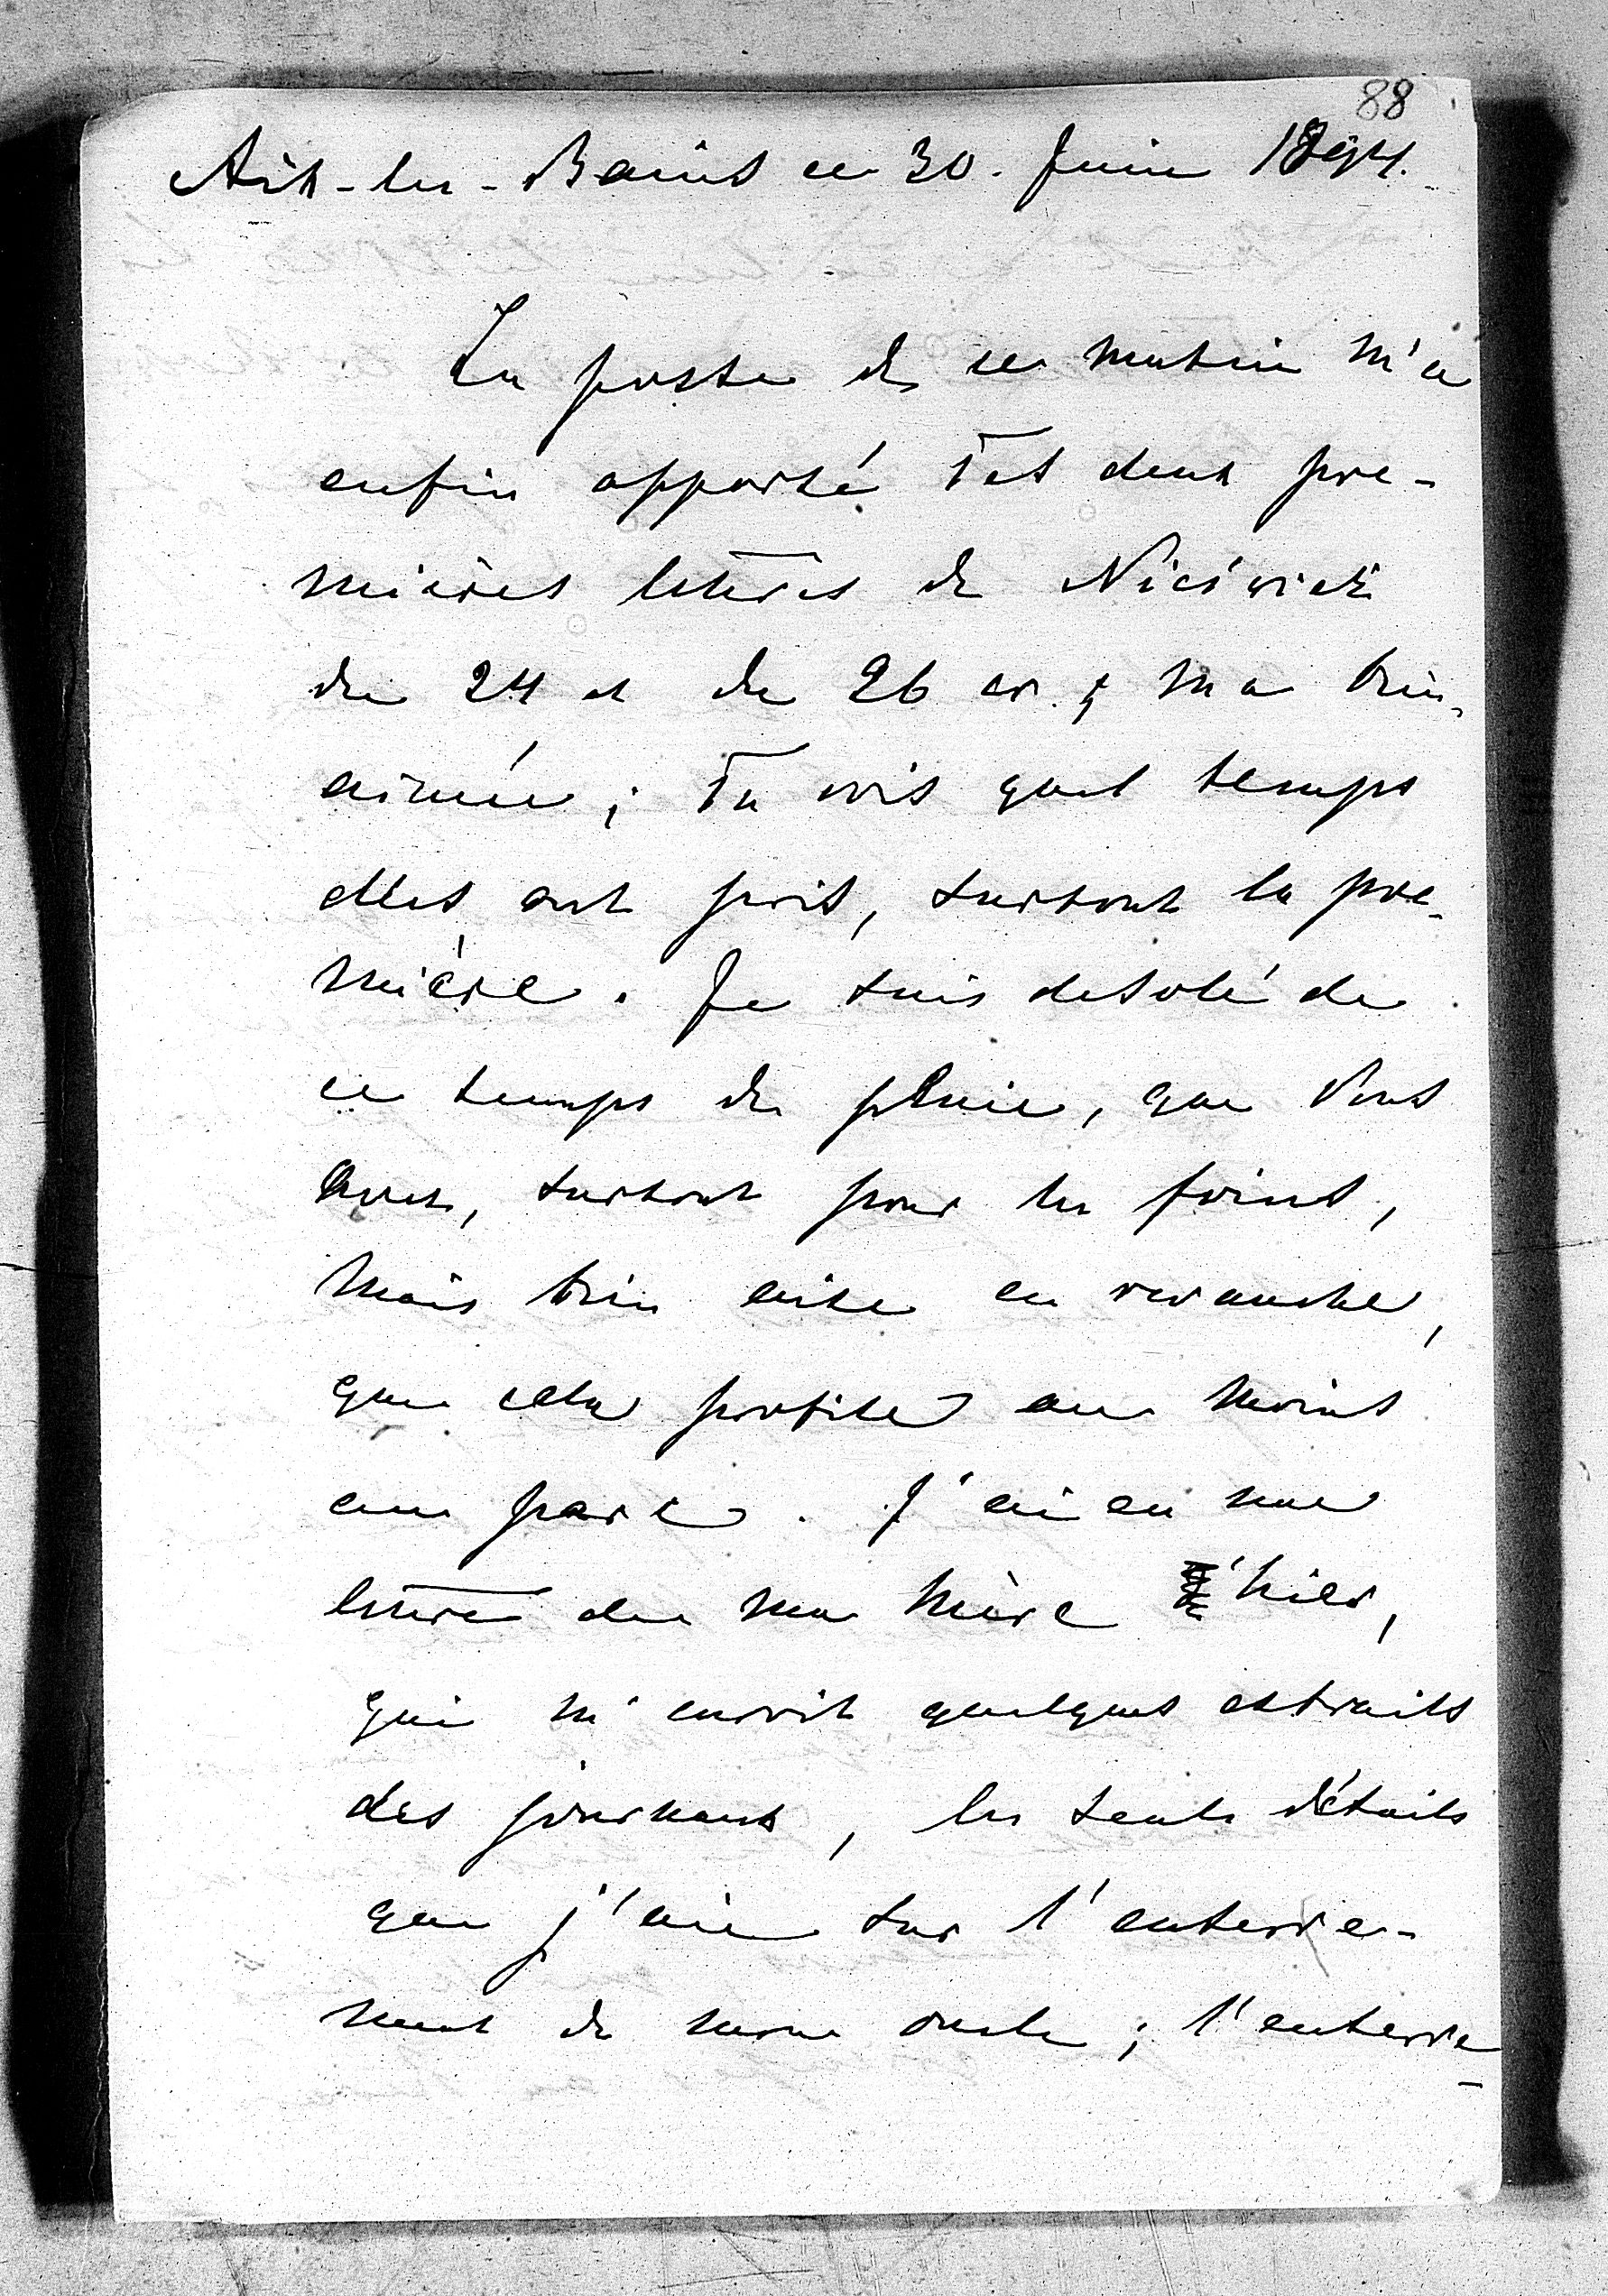 88
Aix-les-Bains ce 30. Juin 1894.
La poste de ce matin m'a
enfin apporté Tes deux pre-
mières lettres de Nieśwież
du 24 et du 26 cr., ma bien-
aimée; Tu vois quel temps
elles ont pris, surtout la pre-
mière. Je suis desolé de
ce temps de pluie, que Vous
avez, surtout pour les foins,
mais bien aise en revanche,
que cela profite au moins
au parc. J'ai eu une
lettre de ma mère hier,
qui m'envoit quelques extraits
des journaux, les seuls détails
que j'aie sur l'enterre-
ment de mon oncle; l'enterre-